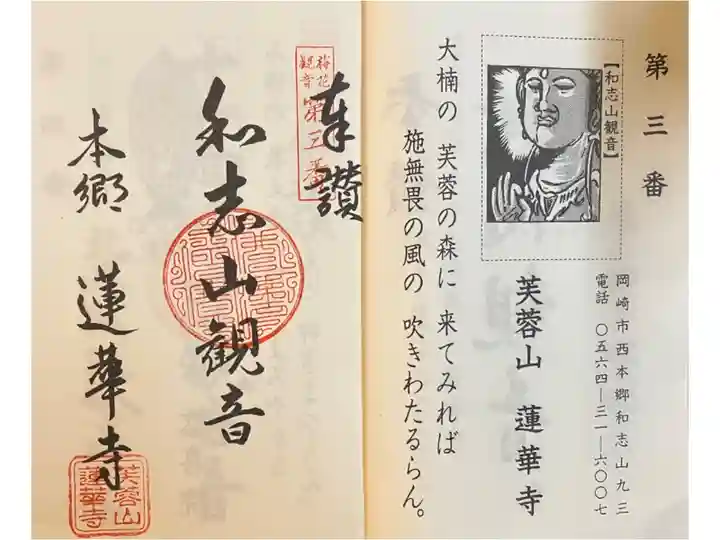 第三番
岡崎市西本郷和志山九三
電話 〇五六四―三一―六〇〇七
【和志山観音】
芙蓉山 蓮華寺
大楠の 芙蓉の森に 来てみれば
施無畏の風の 吹きわたるらん。
奉讃
梅花
観音
第三番
和志山観音
本郷 蓮華寺
芙蓉山
蓮華寺